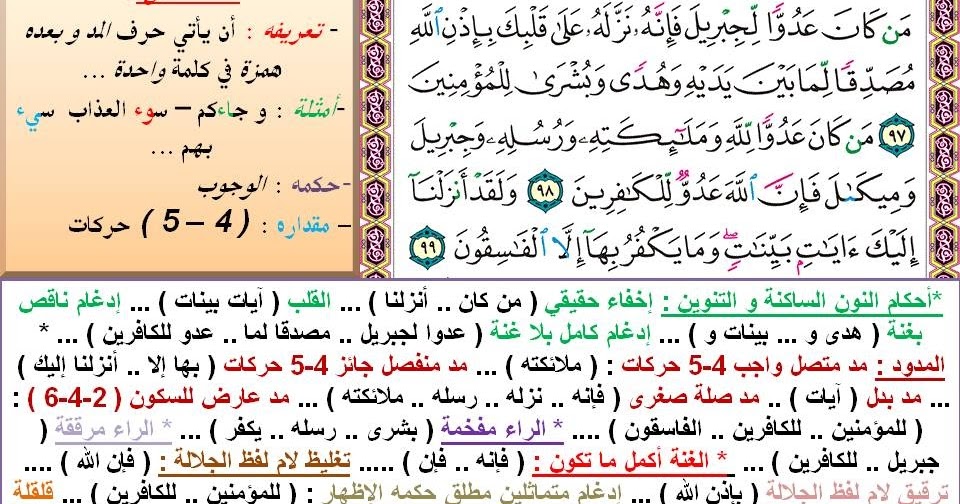 - تعريفه : أن يأتي حرف المد و بعده
همزة في كلمة واحدة ...
-أمثلة : و جاءكم – سوء العذاب سيء
بهم ...
-حكمه : الوجوب
- مقداره : ( 4 – 5 ) حركات
مَن كَانَ عَدُوًّا لِّجِبْرِيلَ فَإِنَّهُۥ نَزَّلَهُۥ عَلَىٰ قَلْبِكَ بِإِذْنِ ٱللَّهِ
مُصَدِّقًا لِّمَا بَيْنَ يَدَيْهِ وَهُدًى وَبُشْرَىٰ لِلْمُؤْمِنِينَ
٩٧ مَن كَانَ عَدُوًّا لِّلَّهِ وَمَلَـٰٓئِكَتِهِۦ وَرُسُلِهِۦ وَجِبْرِيلَ
وَمِيكَىٰلَ فَإِنَّ ٱللَّهَ عَدُوٌّ لِّلْكَـٰفِرِينَ ٩٨ وَلَقَدْ أَنزَلْنَآ
إِلَيْكَ ءَايَـٰتٍۭ بَيِّنَـٰتٍ ۖ وَمَا يَكْفُرُ بِهَآ إِلَّا ٱلْفَـٰسِقُونَ ٩٩
*أحكام النون الساكنة و التنوين : إخفاء حقيقي ( من كان .. أنزلنا ) ... القلب ( آيات بينات ) ... إدغام ناقص
بغنة ( هدى و ... بينات و ) ... إدغام كامل بلا غنة ( عدوا لجبريل .. مصدقا لما .. عدو للكافرين ) ... *
المدود : مد متصل واجب 4-5 حركات : ( ملائكته ) ... مد منفصل جائز 4-5 حركات ( بها إلا .. أنزلنا إليك )
... مد بدل ( آيات ) .. مد صلة صغرى ( فإنه .. نزله .. رسله .. ملائكته ) ... مد عارض للسكون ( 2-4-6 ) :
( للمؤمنين .. للكافرين .. الفاسقون ) .... * الراء مفخمة ( بشرى .. رسله .. يكفر ) ... * الراء مرققة (
جبريل .. للكافرين ) ... * الغنة أكمل ما تكون : ( فإنه .. فإن ) ..... تغليظ لام لفظ الجلالة : ( فإن الله ) ....
ترقيق لام لفظ الجلالة ( بإذن الله ) ... إدغام متماثلين مطلق حكمه الإظهار : ( للمؤمنين .. للكافرين ) ... قلقلة